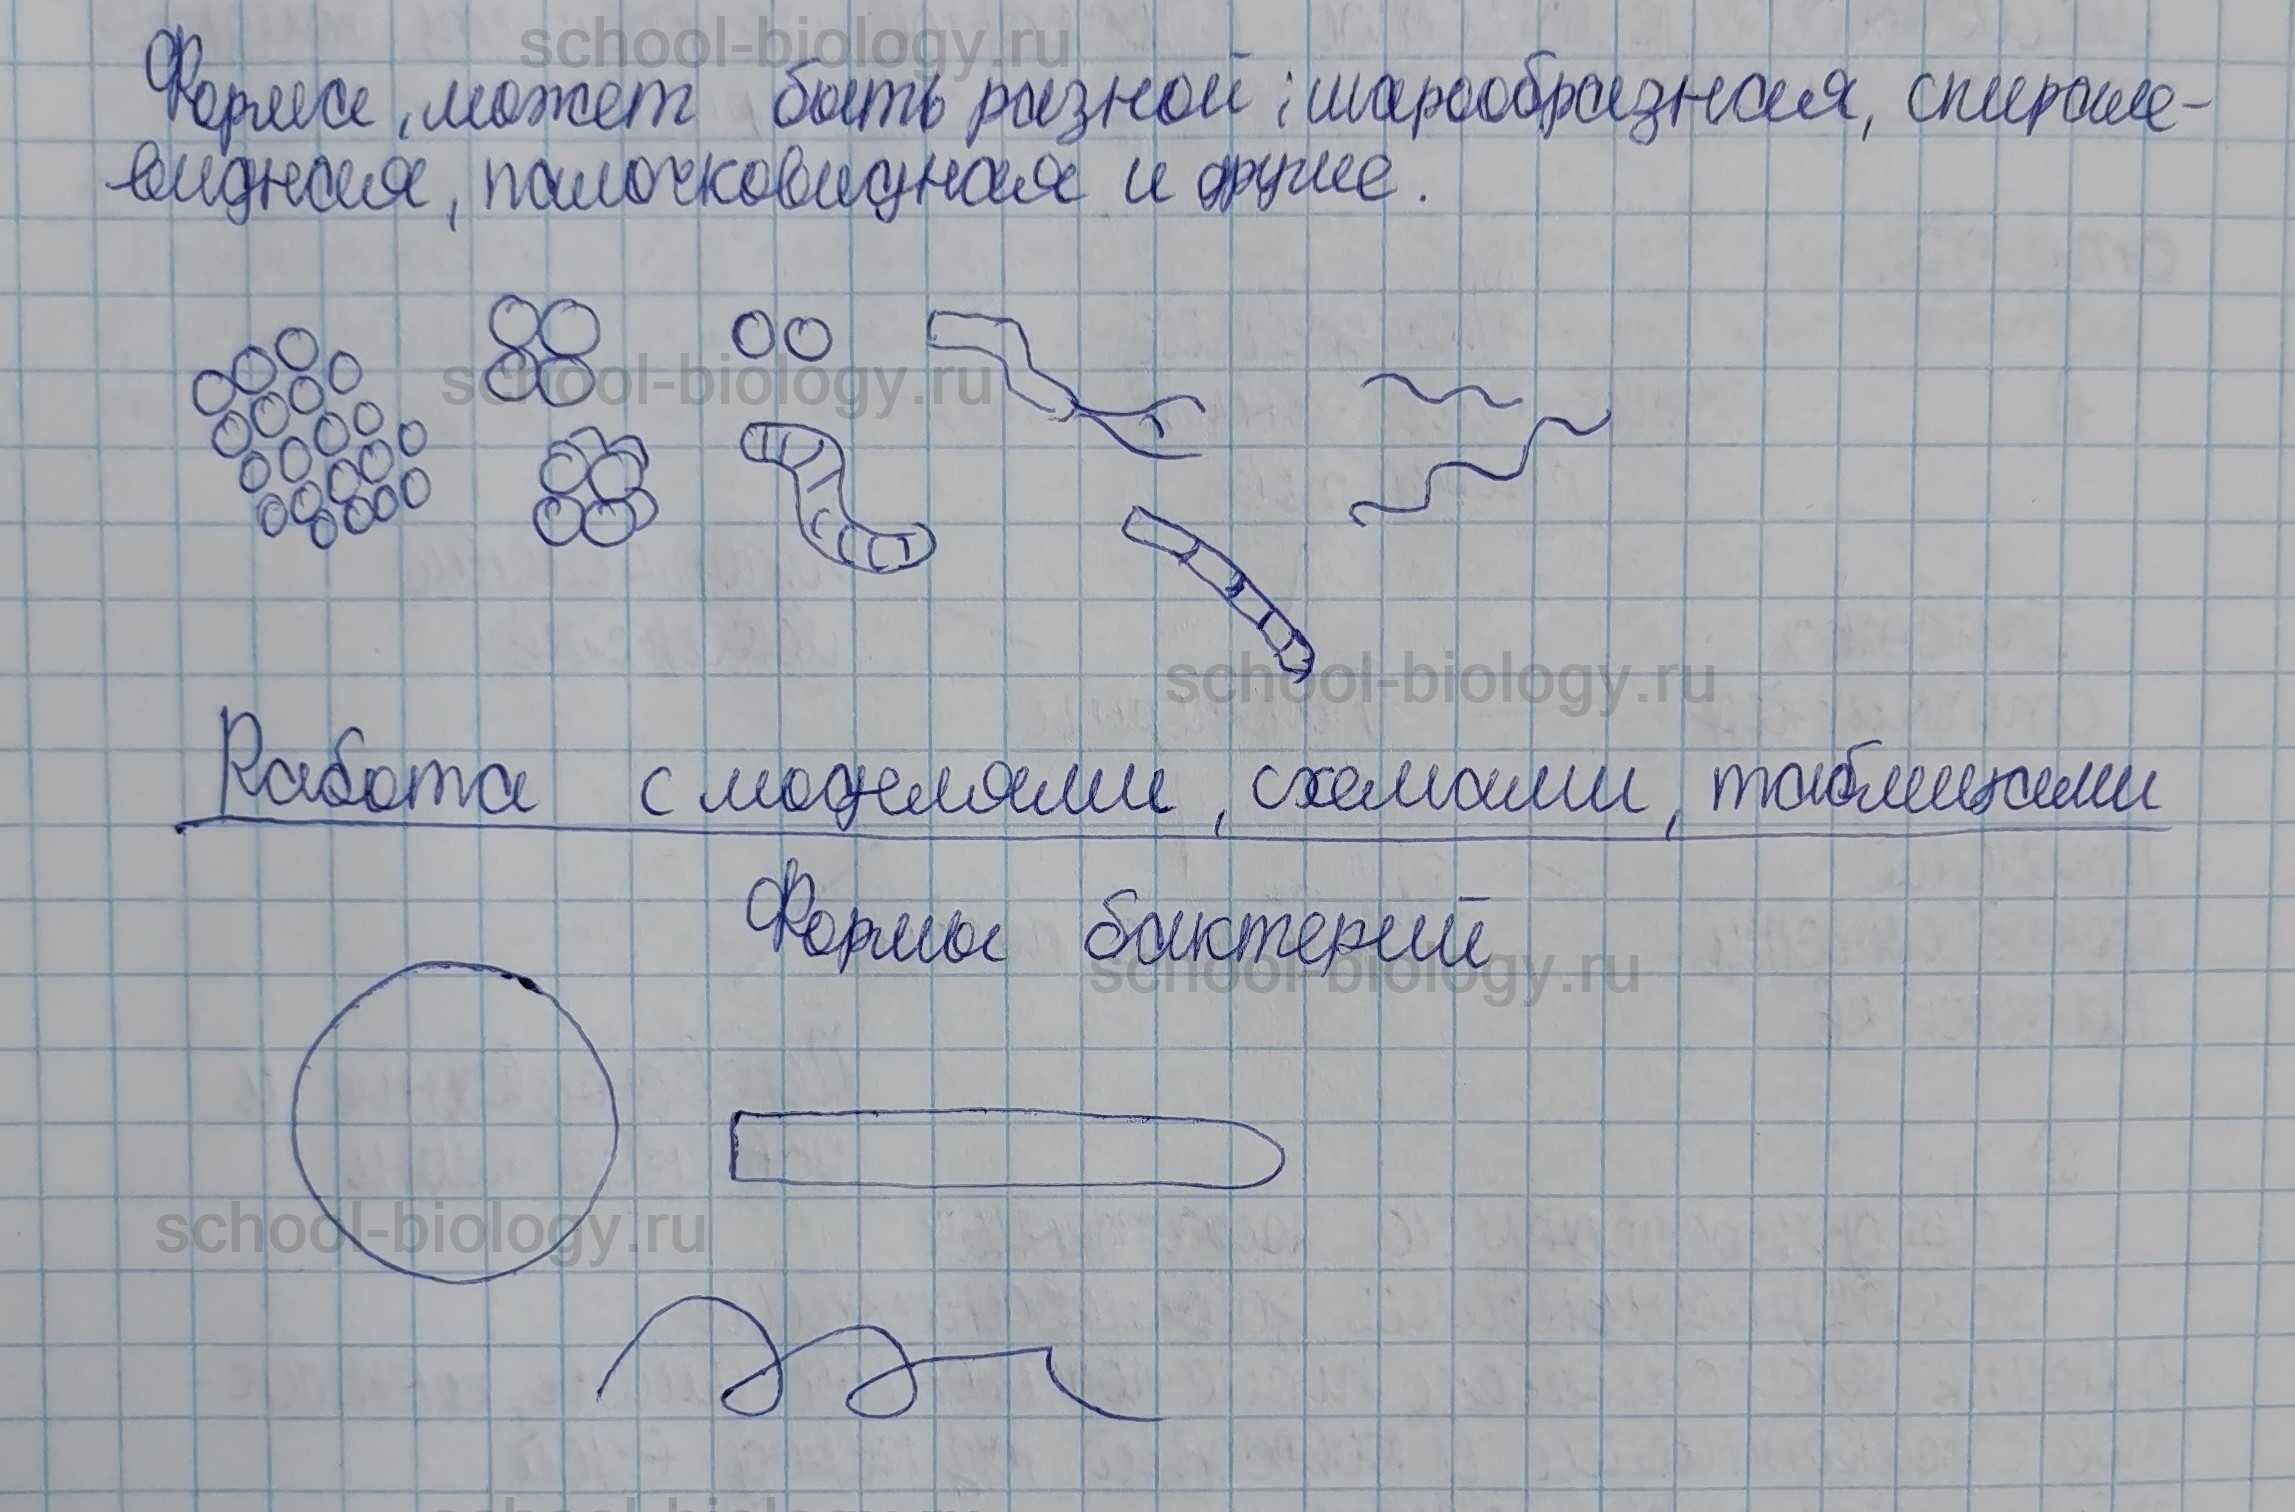 school-biology.ru
Форма, может быть разной: шарообразная, спирале-
видная, палочковидная и другие.
school-biology.ru
school-biology.ru
Работа с моделями, схемами, таблицами
Формы бактерий
school-biology.ru
school-biology.ru
school-biology.ru